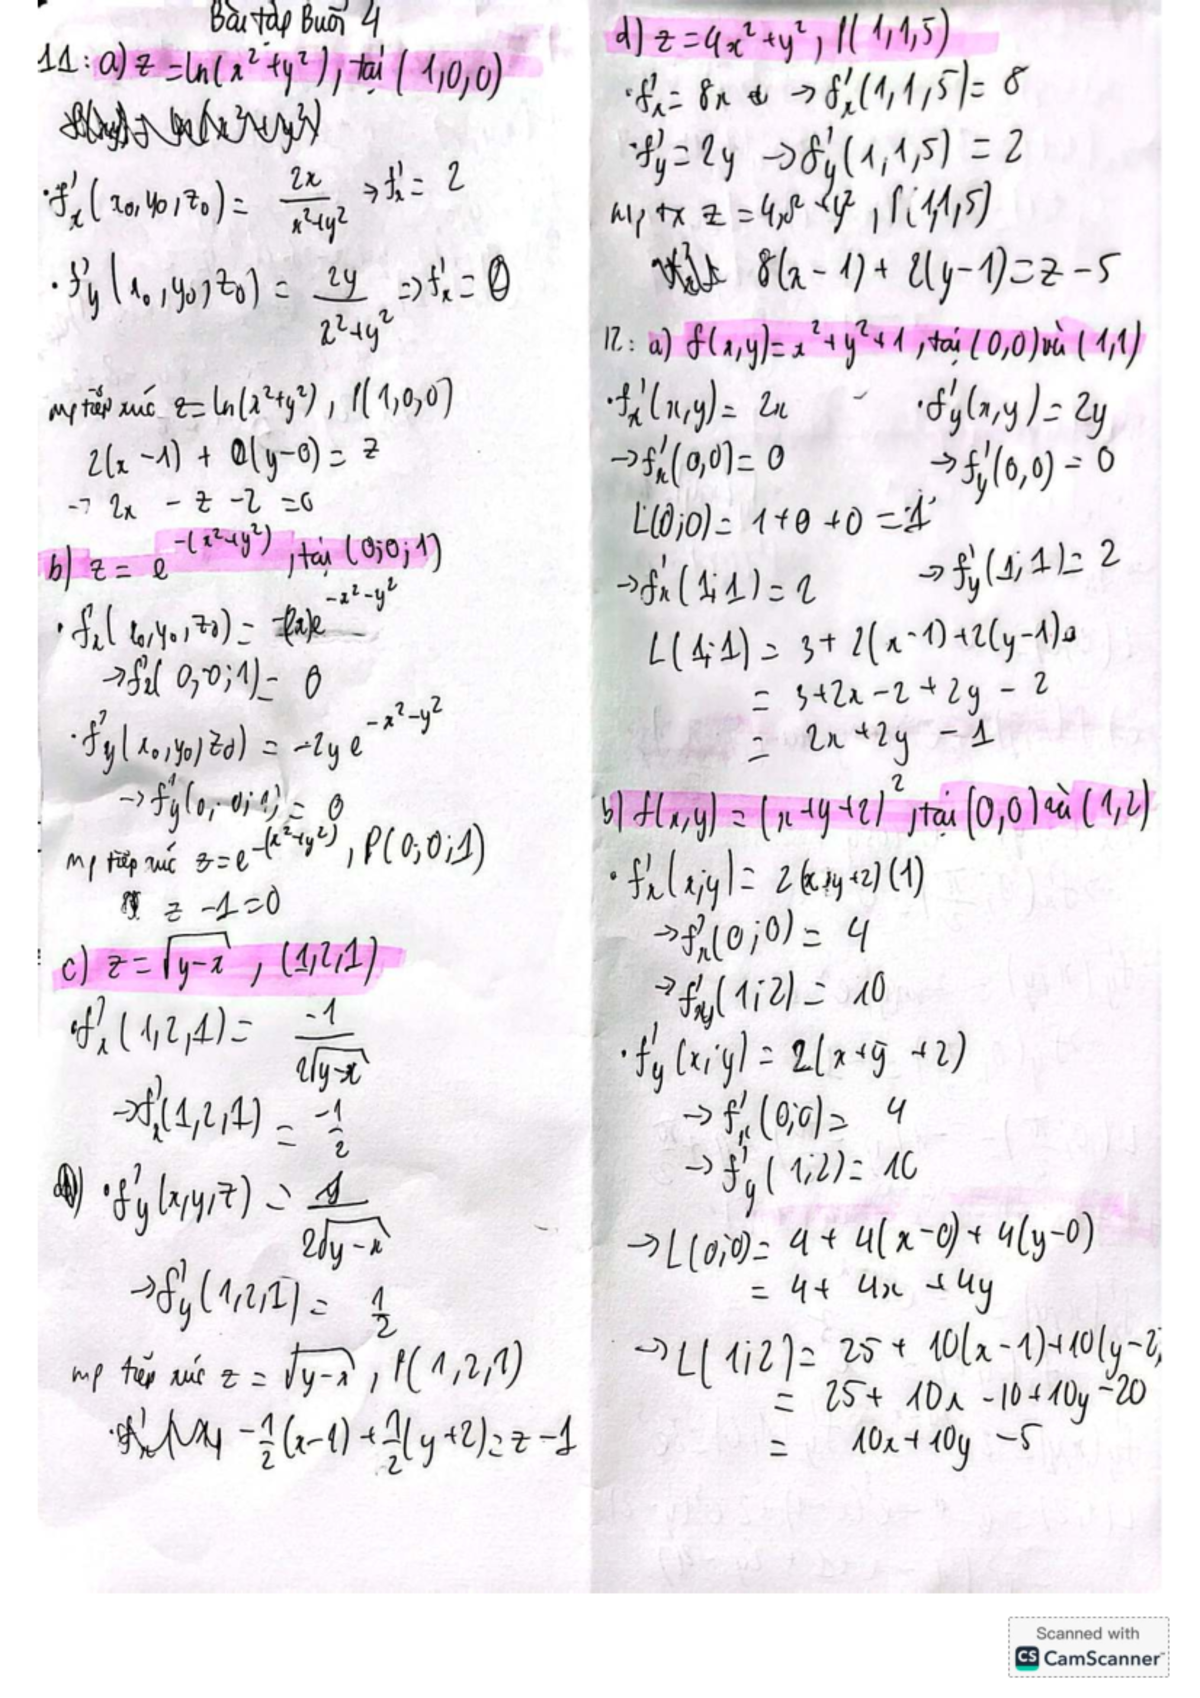 Bài tập Buổi 4
11: a) z = ln(x² + y²), tại (1,0,0)
· f'x (x₀, y₀, z₀) = 2x / x²+y² ⇒ f'x = 2
· f'y (x₀, y₀, z₀) = 2y / x²+y² ⇒ f'x = 0
mp tiếp xúc z = ln(x²+y²), P(1,0,0)
2(x − 1) + 0(y−0) = z
→ 2x − z − 2 = 0
b) z = e^−(x²+y²), tại (0;0;1)
· f'x (x₀, y₀, z₀) = −(2x)e^−x²−y²
→ f'x (0,0;1) = 0
· f'y (x₀, y₀, z₀) = −2y e^−x²−y²
→ f'y (0; 0;1) = 0
mp tiếp xúc z = e^−(x²+y²), P(0;0;1)
z − 1 = 0
c) z = √(y−x), (1,2,1)
· f'x (1,2,1) = −1 / 2√(y−x)
→ f'x (1,2,1) = −1/2
· f'y (x,y,z) = 1 / 2√(y−x)
→ f'y (1,2,1) = 1/2
mp tiếp xúc z = √(y−x), P(1,2,1)
−1/2 (x−1) + 1/2 (y+2) = z − 1
d) z = 4x² + y², P(1,1,5)
· f'x = 8x → f'x (1,1,5) = 8
· f'y = 2y → f'y (1,1,5) = 2
mp tx z = 4x² + y², P(1,1,5)
8(x − 1) + 2(y−1) = z − 5
12: a) f(x,y) = x² + y² + 1, tại (0,0) và (1,1)
· f'x (x,y) = 2x · f'y (x,y) = 2y
→ f'x (0,0) = 0 → f'y (0,0) = 0
L(0;0) = 1 + 0 + 0 = 1
→ f'x (1;1) = 2 → f'y (1;1) = 2
L(1;1) = 3 + 2(x−1) + 2(y−1)
= 3 + 2x − 2 + 2y − 2
= 2x + 2y − 1
b) f(x,y) = (x+y+2)², tại (0,0) và (1,2)
· f'x (x;y) = 2(x+y+2)(1)
→ f'x (0;0) = 4
→ f'x (1;2) = 10
· f'y (x;y) = 2(x+y+2)
→ f'x (0;0) = 4
→ f'y (1;2) = 10
→ L(0;0) = 4 + 4(x−0) + 4(y−0)
= 4 + 4x + 4y
→ L(1;2) = 25 + 10(x−1) + 10(y−2)
= 25 + 10x − 10 + 10y − 20
= 10x + 10y − 5
Scanned with
CS CamScanner